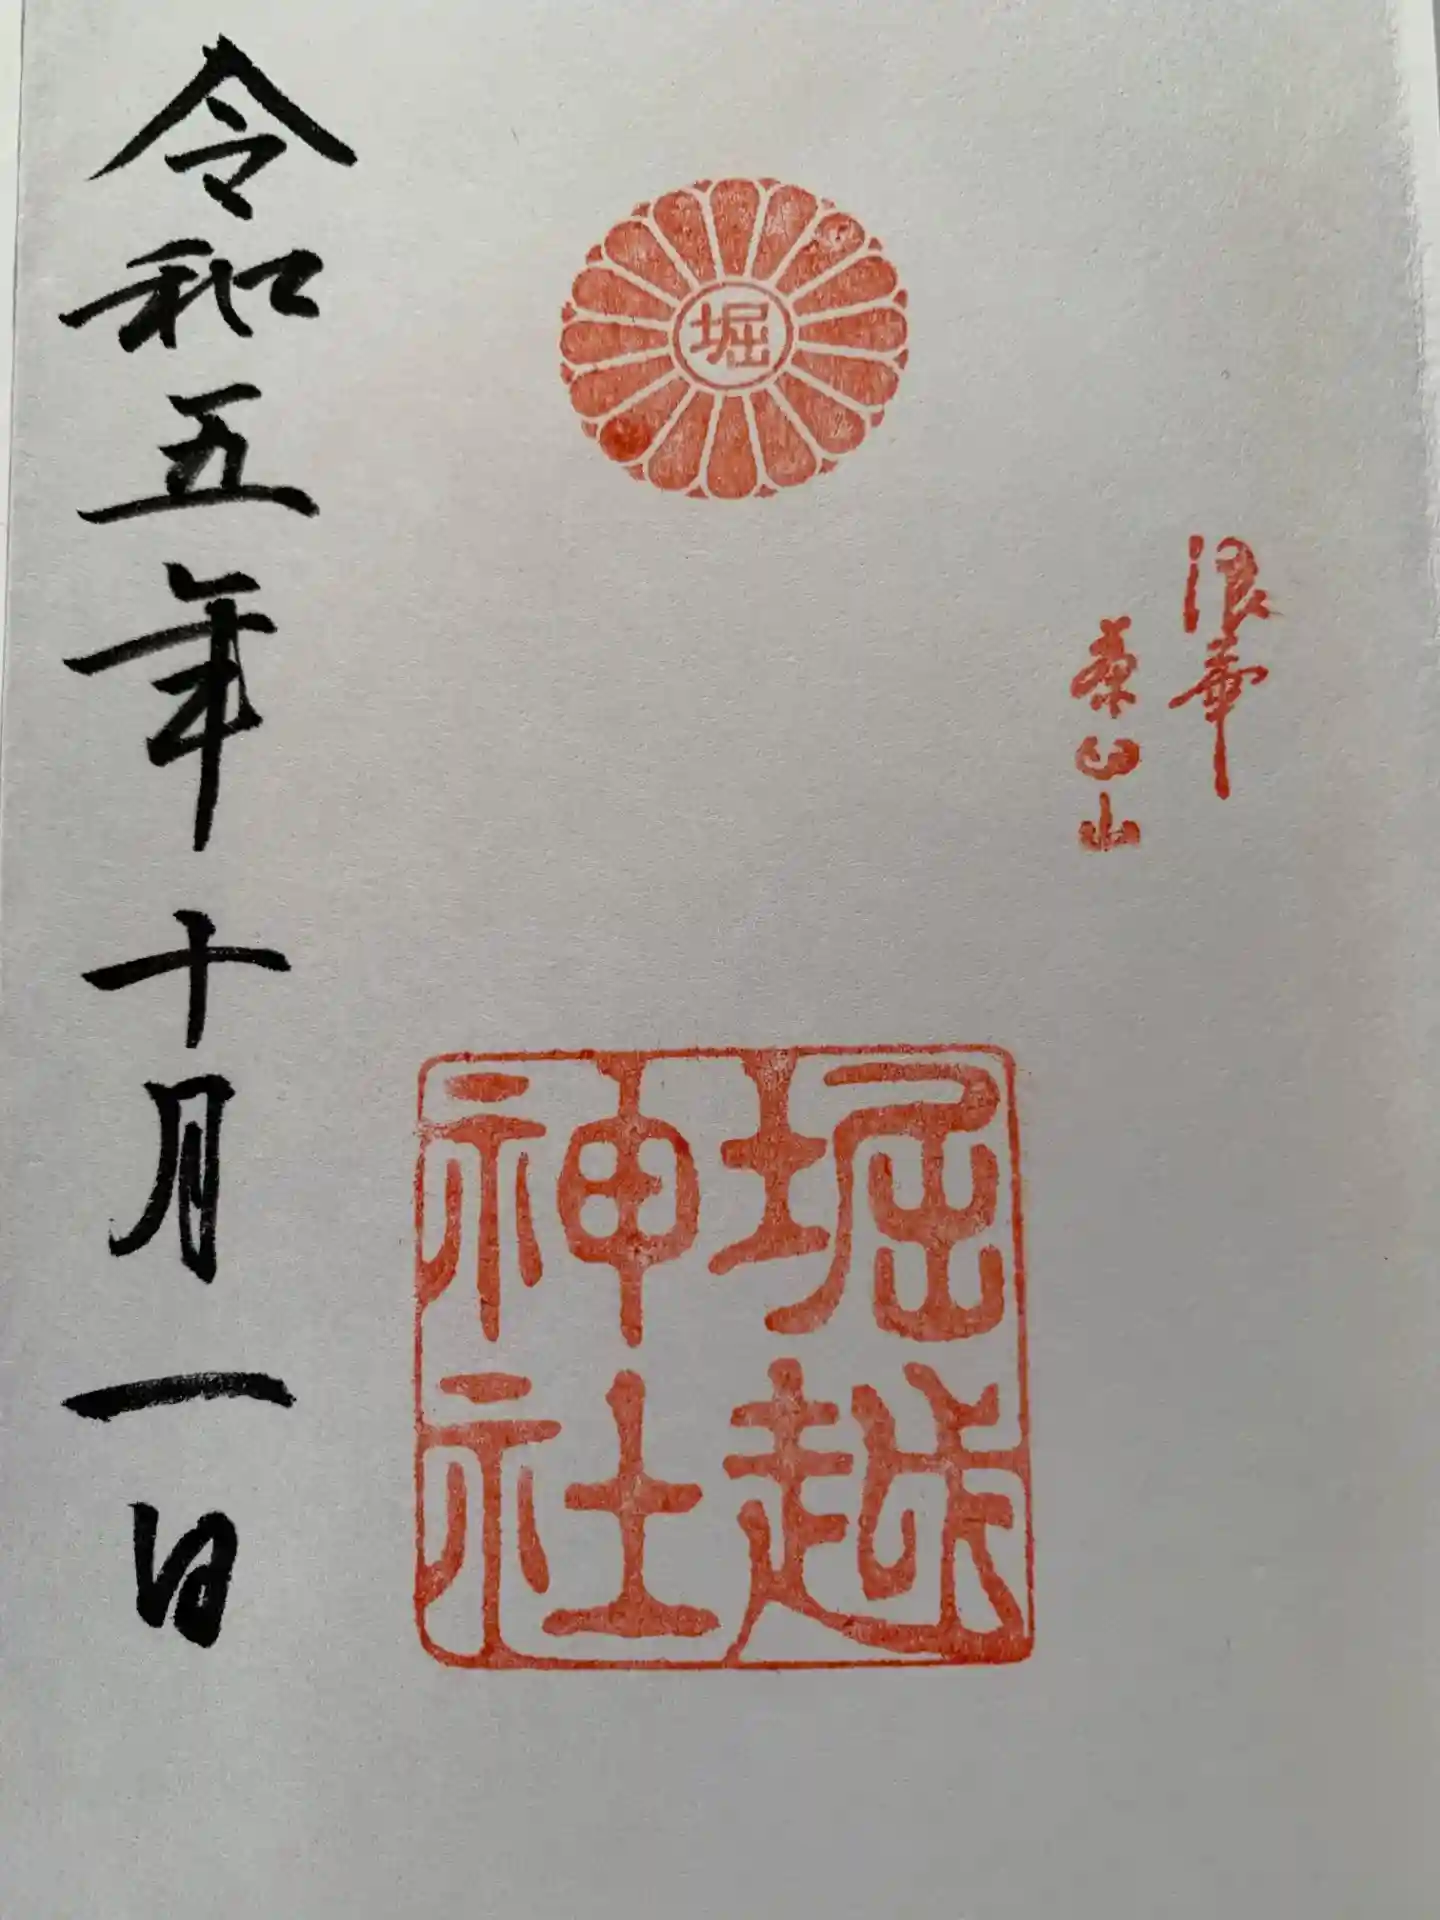 浪華
茶臼山
堀
堀越
神社
令和五年十月一日